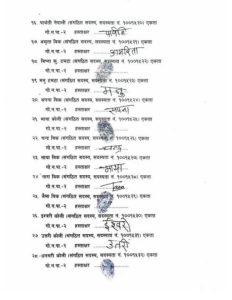 १६. पार्वती नेपाली (संगठित सदस्य, सदस्यता नं. १००५५२०) एकता
गो.न.पा.-२ हस्ताक्षर पार्वती
१७. अमृता विक (संगठित सदस्य, सदस्यता नं. १००५५२१) एकता
गो.न.पा.-२ हस्ताक्षर
१८. विष्णु कु. दमाई (संगठित सदस्य, सदस्यता नं. १००५५२२) एकता
गो.न.पा.-२ हस्ताक्षर
१९. मनु दमाई (संगठित सदस्य, सदस्यता नं. १००५५२३) एकता
गो.न.पा.-२ हस्ताक्षर मनु
२०. सपना विक (संगठित सदस्य, सदस्यता नं. १००५५२४) एकता
गो.न.पा.-२ हस्ताक्षर सपना
२१. माया ओली (संगठित सदस्य, सदस्यता नं. १००५५२५) एकता
गो.न.पा.-२ हस्ताक्षर
२२. विक (संगठित सदस्य, सदस्यता नं. १००५५२६) एकता
गो.न.पा.-२ हस्ताक्षर
२३. माया विक (संगठित सदस्य, सदस्यता नं. १००५५२७) एकता
गो.न.पा.-२ हस्ताक्षर माया
२४. तारा विक (संगठित सदस्य, सदस्यता नं. १००५५२८) एकता
गो.न.पा.-२ हस्ताक्षर
२५. विक (संगठित सदस्य, सदस्यता नं. १००५५२९) एकता
गो.न.पा.-२ हस्ताक्षर
२६. इश्वरी ओली (संगठित सदस्य, सदस्यता नं. १००५५३०) एकता
गो.न.पा.-२ हस्ताक्षर ईश्वरी
२७. उत्तरी ओली (संगठित सदस्य, सदस्यता नं. १००५५३१) एकता
गो.न.पा.-२ हस्ताक्षर उतरी
२८. ओली (संगठित सदस्य, सदस्यता नं. १००५५३२) एकता
गो.न.पा.-२ हस्ताक्षर